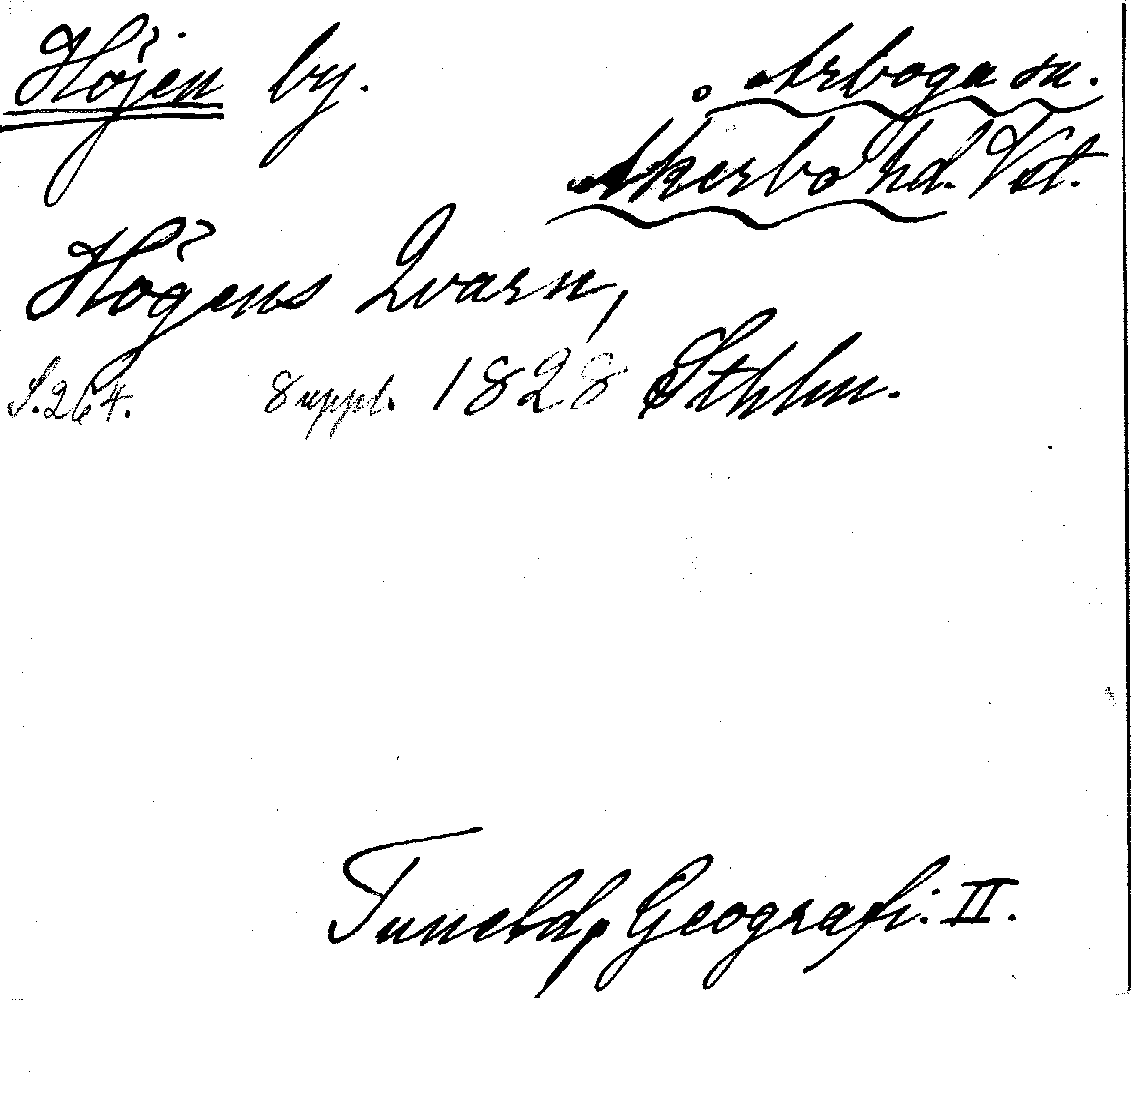 Höjen by. Arboga sn.
Åkerbo hd. Vstm.
Högens Qvarn,
S. 264. Suppl. 1828 Sthlm.
Tunelds Geografi. II.